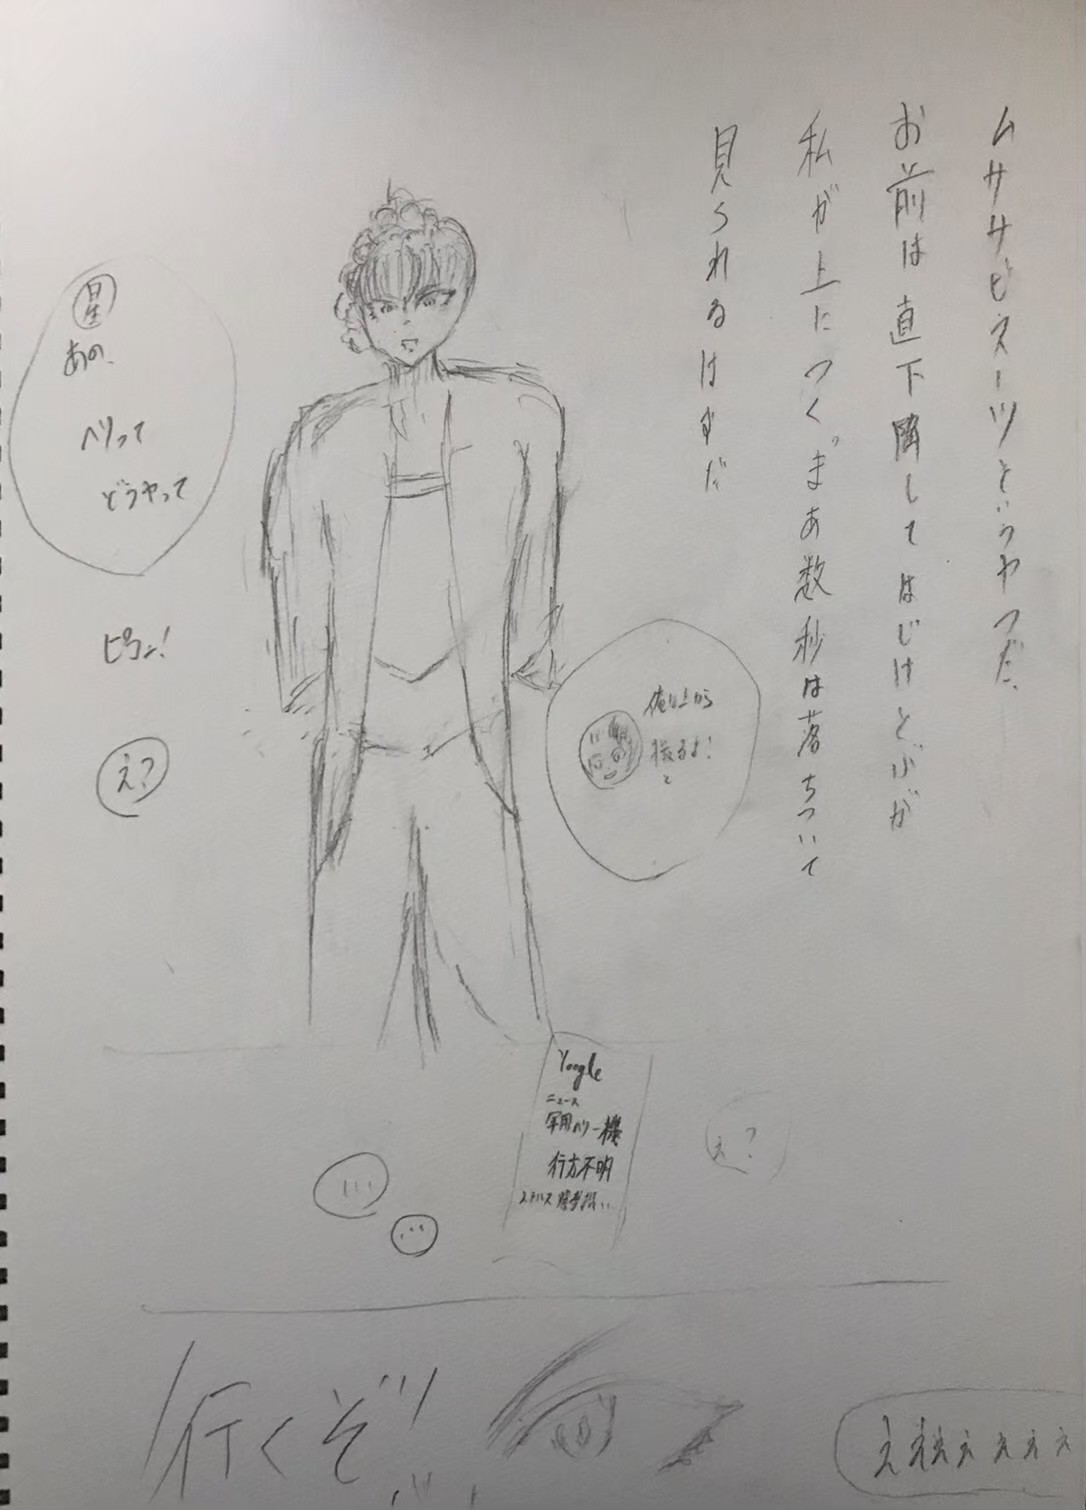 ムササビスーツというやつだ、
お前は直下降してはじけとぶが
私が上につく゛まあ数秒は落ちついて
見られるはずだ
星
あの、
ヘリって
どうやって
ピコン!
え?
俺も上から
撮るよ!
と
Yoogle
ニュース
軍用ヘリ一機
行方不明
ステルス
え?
…
…
行くぞ!!
ええええええ